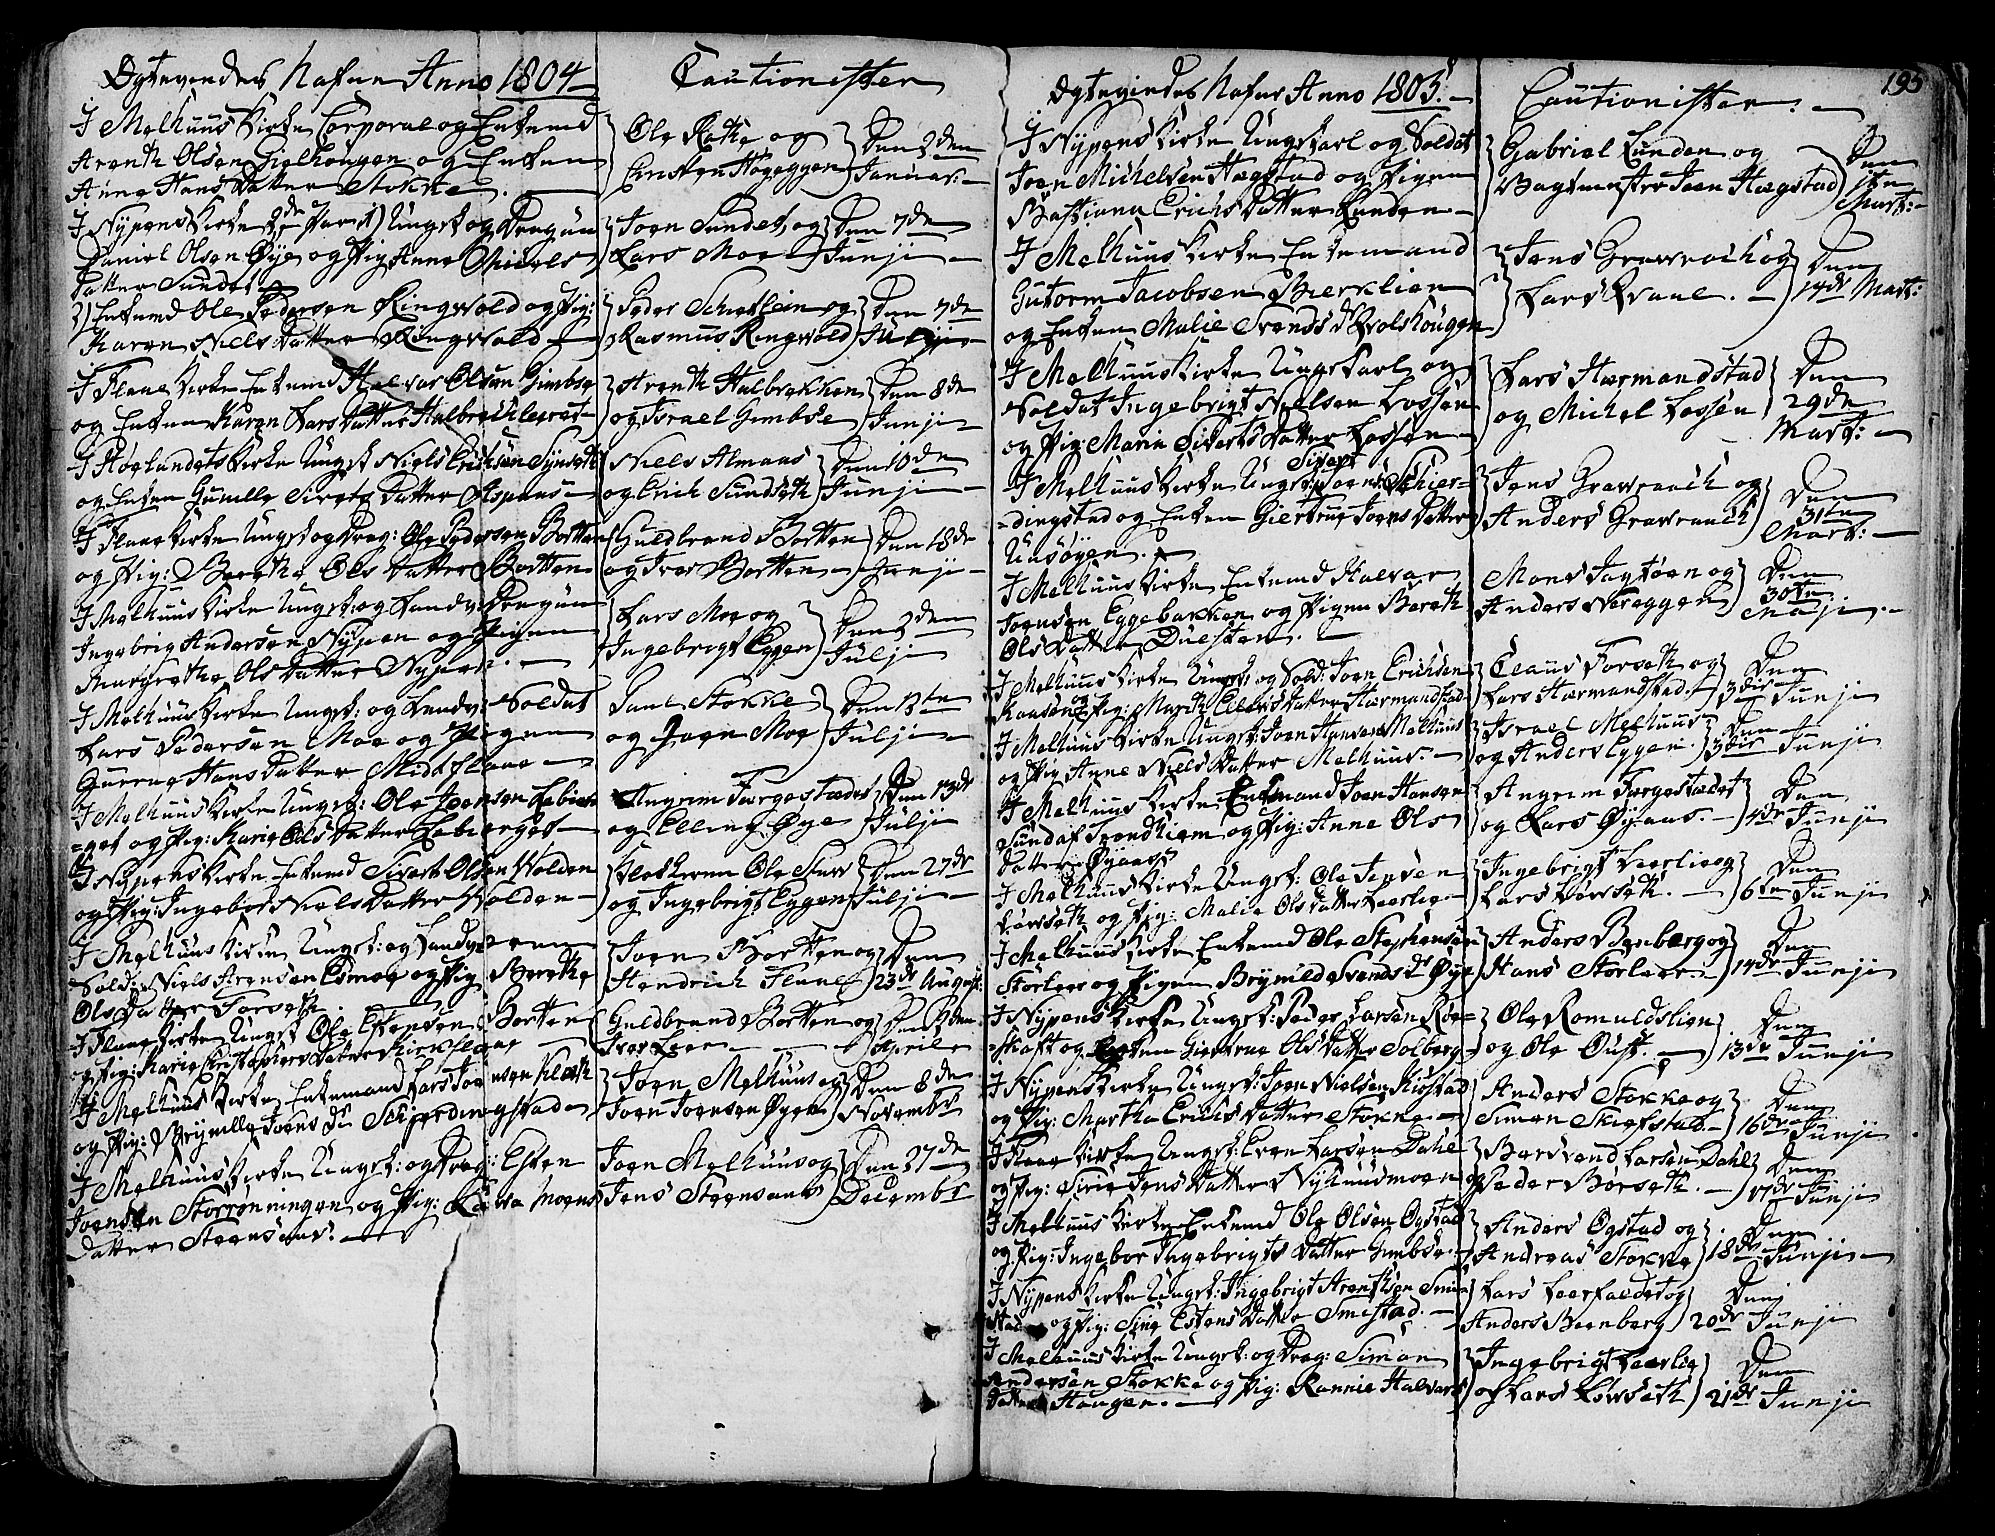 Ægteviendes Nafne Anno 1804
Cautionister
I Melhuus Kirke Corporal og Enkemd
Arenth Olsen Gielhougen og Enken
Anne Hans Datter Stokke.
Ole Rathe og
Cristen Høyeggen
Den 3den
Januar:
I Nypens Kirke Ungk og Dragun
Daniel Olsen Øye og Pig Anne Michels
Datter Sundet
Joen Sundet og
Lars Moe
Den 7de
Junji
2) Enkemd Ole Pedersen Ringvold og Pig:
Karen Niels Datter Ringvold
Peder Schetlein og
Rasmus Ringvold
Den 7de
I Flaae Kirke Enkemd Halvor Olsen Gimbse
og Enken Karen Lars Datter Halbrechleret
Arenth Halbrekken
og Israel Gimbse
Den 8de
Junji
I Høylandets Kirke Ungk Niels Erichsen
og Enken Gunille Sivers Datter Aspaas
Niels Almaas
og Erich Sundseth
Den 10de
Junji
I Flaae Kirke Ungk og Drag: Ole Pedersen Bortten
og Pig: Berethe Ols Datter Bortten
Guldbrand Bortten
og Iver Bortten
Den 18de
Junji
I Melhuus Kirke Ungk og Landv Dragun
Ingebrig Andersen Nypen og Pigen
Margrethe Ols Datter Nypen.
Lars Moe og
Ingebrigt Eggen
Den 3den
Julji
I Melhuus Kirke Ungk: og Landv: Soldat
Lars Pedersen Moe og Pigen
Guruna Hans Datter Middflaae
Paul Stokke
og Joen Moe
Den 13ten
Julji
I Melhuus Kirke Ungk: Ole Joensen
get og Pig: Marie Ols Datter
Angrim Fargestadet
og Elling Øye
Den 13de
Julji
I Nypens Kirke Enkemd Sivert Olsen Wolden
og Pig: Ingebor Niels Datter Wolden
Klokkeren Ole
og Ingebrigt Eggen
Den 27de
Julji
I Melhuus Kirke Ungk: og Landværn
Sold: Niels Arensen Esmoe og Pig Berethe
Ols Datter Forseth
Joen Bortten og
Hendrich Flaae
Den
23de August:
I Flaae Kirke Ungk Ole Estensen Bortten
og Pig: Marie Christophers Datter Kirkflaae
Guldbrand Bortten og
Iver Leer
Den
April
I Melhuus Kirke Enkemand Lars Joensen
og Pig: Brynille Joens Dr Schjerdingstad
Joen Melhuus og
Joen Joensen Øyen
Den 8de
Novembr
I Melhuus Kirke Ungk: og Drag: Esten
Joensen Storrønningen og Pig: Moens
Datter Steensaas:
Joen Melhuus og
Jens Steensaas
Den 27de
Decembr
Ægteviedes Nafne Anno 1805.
Cautionister.
195
I Nypens Kirke Ungkarl og Soldat
Joen Michelsen Hægstad og Pigen
Bastiana Erichs Datter Lunden
Gabriel Lunden og
Vagtmester Joen Hægstad
Den
Mart:
I Melhuus Kirke Enkemand
Gutorm Jacobsen Bierklien
og Enken Malie Svends Dr
Jens Grawraach og
Lars Kvaal.
Den
14de Mart:
I Melhuus Kirke Ungkarl og
Soldat Ingebrigt Nielsen Lossen
og Pig: Marin Siverts Datter Lossen
Lars Hærmandstad
og Michel Lossen
Den
29de
Mart:
I Melhuus Kirke Ungk: Sivert Joens: Schier-
dingstad og Enken Giertrue Joens Datter
Jens Grawraach og
Anders Grawraach
Den
31te
Mart:
I Melhuus Kirke Enkemd Halvor
Joensen Eggebakken og Pigen Bereth
Ols Datter
Mons Jagtøen og
Anders Nereggen
Den
30te
Maji.
I Melhuus Kirke Ungk: og Sold: Joen Erichsen
Kaasen og Pig: Marith Datter Hærmandstad
Claus Forseth og
Lars Hærmandstad
Den
3die Junji
I Melhuus Kirke Ungk: Joen Melhuus
og Pig Anne Niels Datter Melhuus.
Israel Melhuus
og Anders Eggen.
Den
3die Junji
I Melhuus Kirke Enkemand Joen Hansen
Sund af Trondhiem og Pig: Anne Ols
Datter Øyaas
Angrim Fargestadet
og Lars Øyaas.
Den
4de Junji
I Melhuus Kirke Ungk: Ole Jensen
Løvseth og Pig: Malie Ols Datter Leerlie
Ingebrigt Leerlie og
Lars Løvseth.
Den
6te Junji
I Melhuus Kirke Enkemd Ole Stephansen
Storleer og Pigen Brynild Svends Dr Øye
Anders Benberg og
Hans Storleer
Den
14de Junji
I Nypens Kirke Ungk: Peder Larsen Roe-
skaft og Enken Giertrue Ols Datter Solberg
Ole Romuldslien
og Ole Oust.
Den
13de Junji
I Nypens Kirke Ungk: Joen Nielsen Kiøstad
og Pig: Martha Erichs Datter Stokke
Anders Stokke og
Simon Skiefstad.
Den
16de Junji
I Flaae Kirke Ungk: Even Larsen Dahl
og Pig: Sirie Jens Datter Nyhuusmoen
Bersvend Larsen Dahl
Peder Børseth.
Den
17de Junji
I Melhuus Kirke Enkemd Ole Olsen Øgstad
og Pig: Ingebor Ingebrigts Datter Gimbse.
Anders Øgstad og
Andreas Stokke
Den
18de Junji
I Nypens Kirke Ungk: Ingebrigt Arenthsen Smi-
stad og Pig: Sine Estens Datter Smistad.
Lars Leerfaldet og
Anders Benberg
Den
20de Junji
I Melhuus Kirke Ungk: og Drag: Simon
Andersen Stokke og Pig: Rannie Halvors
Datter Haugen.
Ingebrigt Leerlie
og Lars Løvseth
Den
21de Junji